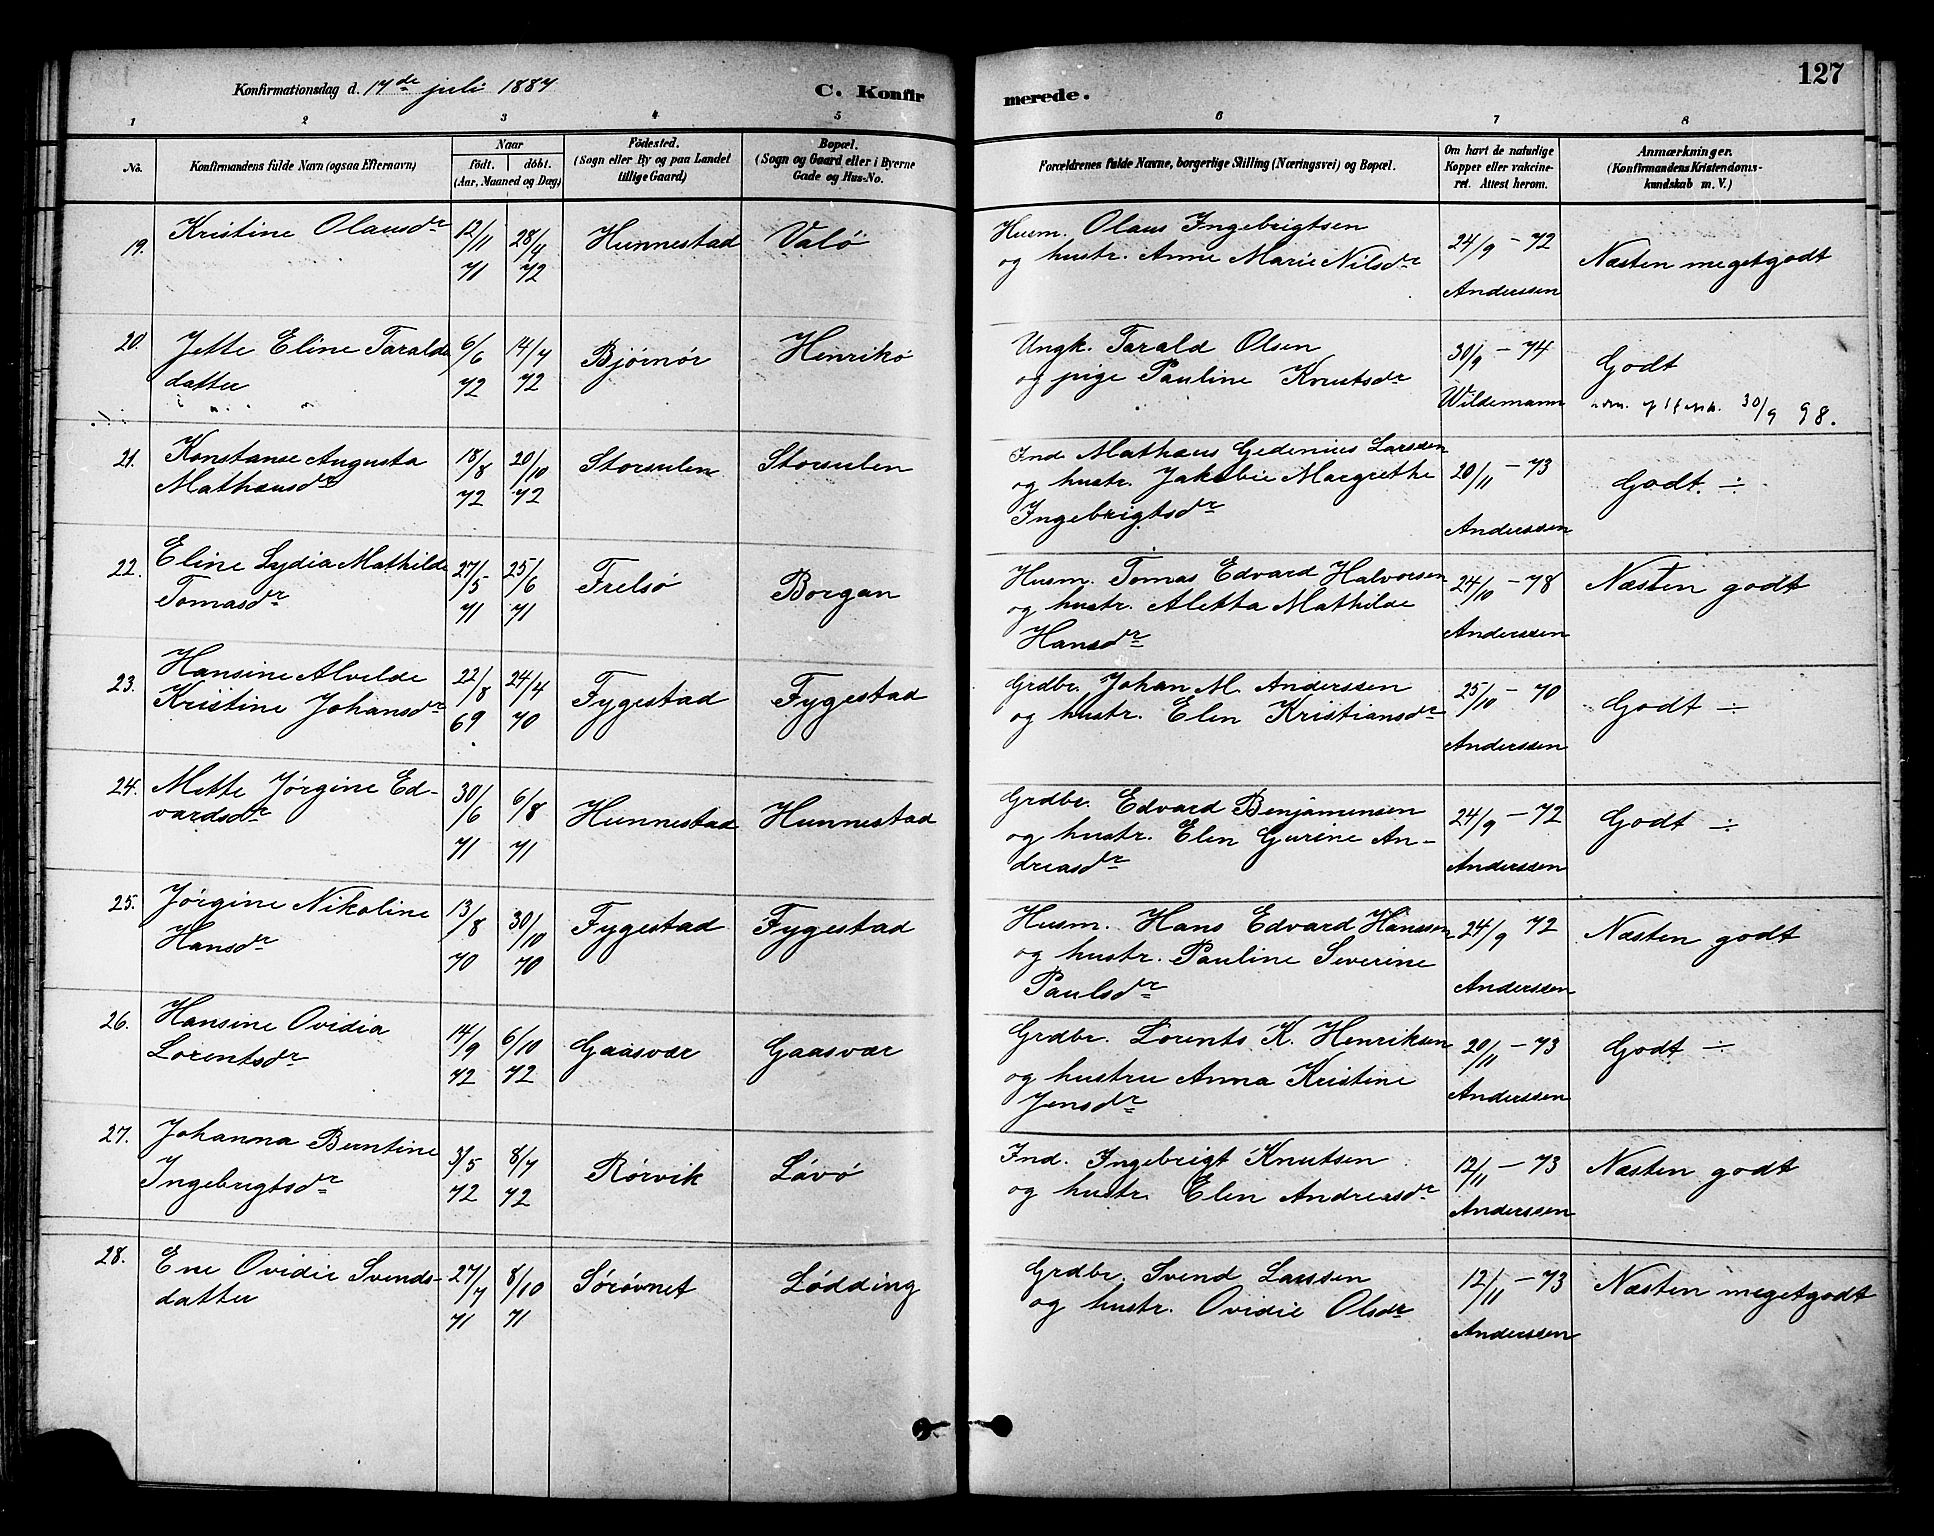 127
Konfirmationsdag d. 17de juli 1887
C. Konfirmerede.
1 2 3 4 5 6 7 8
No.
Konfirmandens fulde Navn (ogsaa Efternavn)
Naar
födt. döbt.
(Aar, Maaned og Dag)
Födested.
(Sogn eller By og paa Landet
tillige Gaard)
Bopæl.
(Sogn og Gaard eller i Byerne
Gade og Hus-No.
Forældrenes fulde Navne, borgerlige Stilling (Næringsvei) og Bopæl.
Om havt de naturlige
Kopper eller vakcine-
ret. Attest herom.
Anmærkninger.
(Konfirmandens Kristendoms-
kundskab m. V.)
19. Kristine Olausdr 12/11 71 28/4 72 Hunnestad Valö
Husm. Olaus Ingebrigtsen
og hustr. Anne Marie Nilsdr
24/9 - 72
Anderssen
Næsten megetgodt
20. Jette Eline Taralds
datter
6/6 72 14/7 72 Bjørnør Henrikö
Ungk. Tarald Olsen
og pige Pauline Knutsdr
30/9 - 74
Wildemann
Godt
30/9 98.
21. Konstanse Augusta
Mathausdr
18/8 72 20/10 72 Storsulen Storsulen
Ind Mathæus Gedenius Larssen
og hustr. Jakobie Margrethe
Ingebrigtsdr
20/11 - 73
Anderssen
Godt. ÷
22. Eline Lydia Mathilde
Tomasdr
27/5 71 25/6 71 Frelsö Borgan
Husm. Tomas Edvard Halvorsen
og hustr. Aletta Mathilde
Hansdr
24/10 - 78
Anderssen
Næsten godt
23. Hansine Alvilde
Kristine Johansdr
22/8 69 24/4 70 Fygestad Fygestad
Grdbr. Johan M. Anderssen
og hustr. Elen Kristiansdr
25/10 - 70
Anderssen
Godt ÷
24. Mette Jørgine Ed-
vardsdr
30/6 71 6/8 71 Hunnestad Hunnestad
Grdbr. Edvard Benjaminsen
og hustr. Elen Gurine An-
dreasdr
24/9 - 72
Anderssen
Godt ÷
25. Jørgine Nikoline
Hansdr
13/8 70 30/10 70 Fygestad Fygestad
Husm. Hans Edvard Hanssen
og hustr. Pauline Severine
Paulsdr
24/9 72
Anderssen
Næsten godt
26. Hansine Ovidia
Lorentsdr
14/9 72 6/10 72 Gaasvær Gaasvær
Grdbr. Lorents K. Henriksen
og hustru Anna Kristine
Jensdr
20/11 - 73
Anderssen
Godt ÷
27. Johanna Berntine
Ingebrigtsdr
3/5 72 8/7 72 Rörvik Lávö
Ind. Ingebrigt Knutsen
og hustr. Elen Andreasdr
12/11 - 73
Anderssen
Næsten godt
28. Ene Ovidie Svends-
datter
27/7 71 8/10 71 Söróvnet Lödding
Grdbr. Svend Larssen
og hustr. Ovidie Olsdr
12/11 - 73
Anderssen
Næsten megetgodt